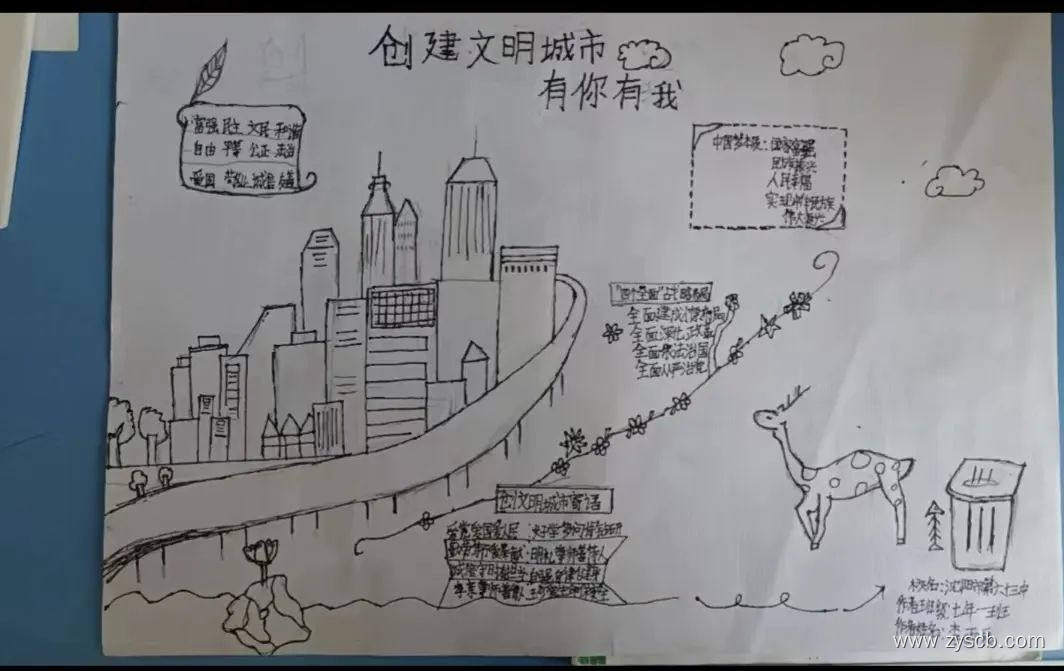 创建文明城市
有你有我
富强 民主 文明 和谐
自由 平等 公正 法治
爱国 敬业 诚信 友善
中国梦本质：国家富强
民族振兴
人民幸福
实现中华民族
伟大复兴
"四个全面"战略布局
全面深化改革
全面依法治国
全面从严治党
创文明城市寄语
校名：沈阳市第六十三中
作者班级：七年一班
作者姓名：
www.zyscb.com